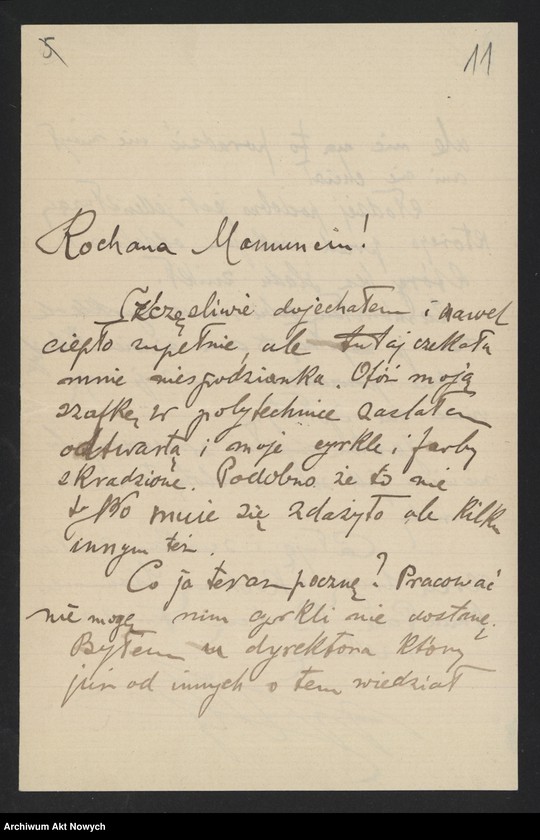 5
11
Kochana Mamunciu!
Szczęśliwie dojechałem i nawet
ciepło zupełnie, ale tutaj czekała
mnie niespodzianka. Otóż moją
szafkę w polytechnice zastałem
odtwartą i moje cyrkle i farby
skradzione. Podobno że to nie
tylko mnie się zdażyło ale kilku
innym też.
Co ja teraz pocznę? Pracować
nie mogę nim cyrkli nie dostanę.
Byłem u dyrektora który
już od innych o tem wiedział
Archiwum Akt Nowych